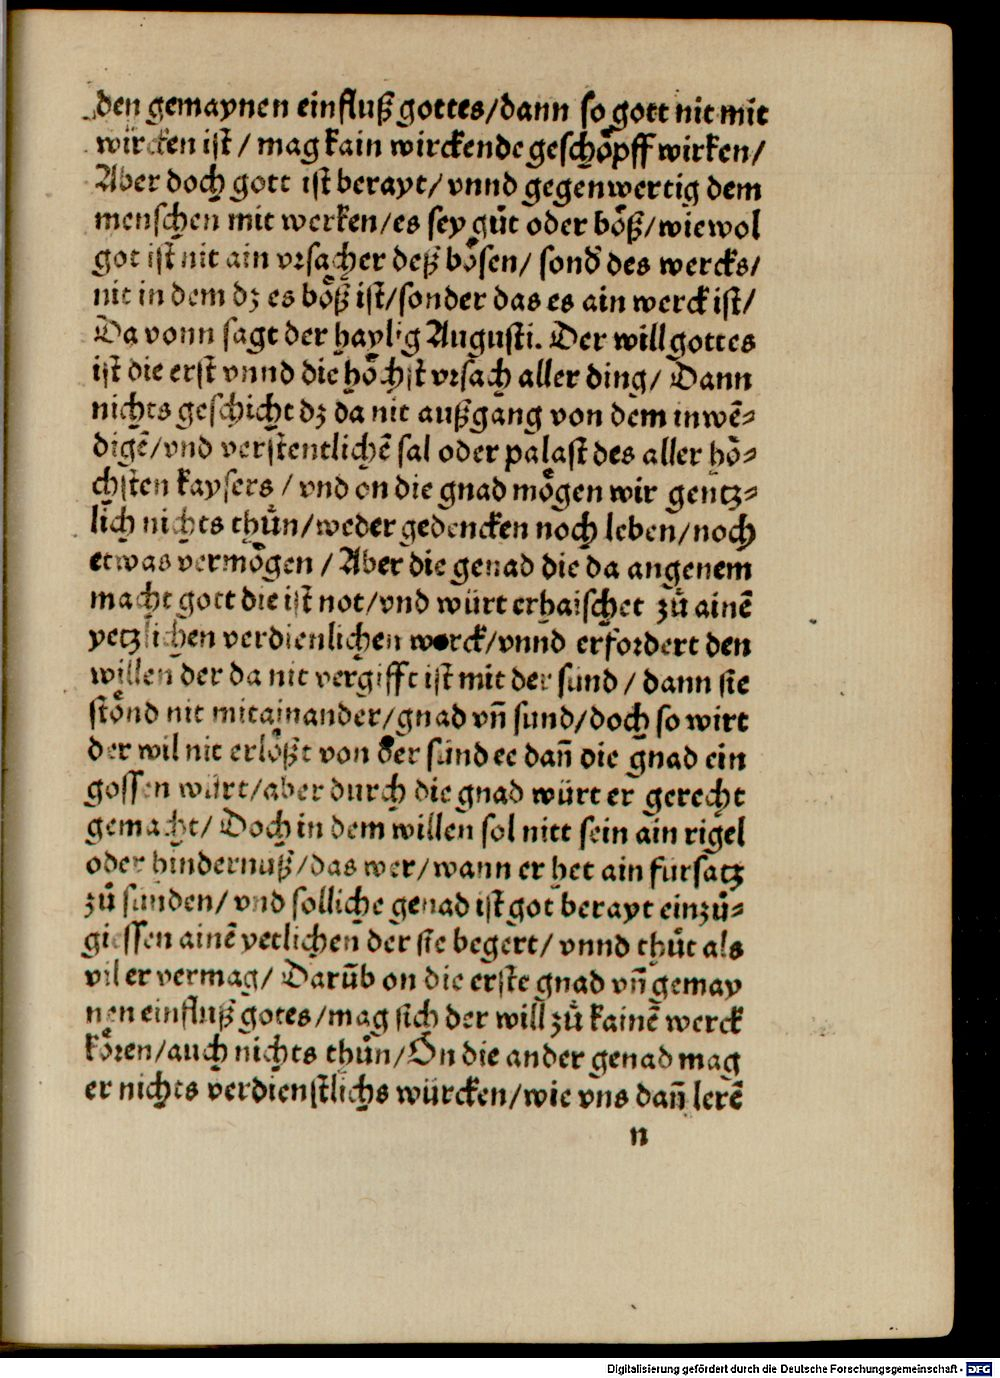 den gemaynen einfluß gottes/dann so gott nit mit
würcken ist/ mag kain wirckende geschöpff wirken/
Aber doch gott ist berayt/ vnnd gegenwertig dem
menschen mit werken/es sey gůt oder böß/wiewol
got ist nit ain vrsacher deß bösen/ sond̕ des wercks/
nit in dem dz es böß ist/sonder das es ain werck ist/
Da vonn sagt der haylig Augusti. Der will gottes
ist die erst vnnd die höchst vrsach aller ding/ Dann
nichts geschicht dz da nit außgang von dem inwē-
digē/vnd verstentlichē sal oder palast des aller hö-
chsten kaysers /vnd on die gnad mögen wir gentz-
lich nichts thůn/weder gedencken noch leben/noch
etwas vermögen /Aber die genad die da angenem
macht gott die ist not/vnd würt erhaischet zů ainē
yetzlichen verdienlichen werck/vnnd erfordert den
willen der da nit vergifft ist mit der sünd / dann sie
stönd nit mitainander/gnad vn̄ sund/doch so wirt
der wil nit erlößt von der sünd ee dan̄ die gnad ein
gossen würt/aber durch die gnad würt er gerecht
gemacht/ Doch in dem willen sol nitt sein ain rigel
oder hindernuß/das wer/wann er het ain fursatz
zů sunden/ vnd solliche genad ist got berayt einzů-
giessen ainē yetlichen der sie begert/ vnnd thůt als
vil er vermag/ Darūb on die erste gnad vn̄ gemay
nen einfluß gotes/mag sich der will zů kainē werck
kören/auch nichts thůn/On die ander genad mag
er nichts verdienstlichs würcken/wie vns dan̄ lerē
n
Digitalisierung gefördert durch die Deutsche Forschungsgemeinschaft - DFG